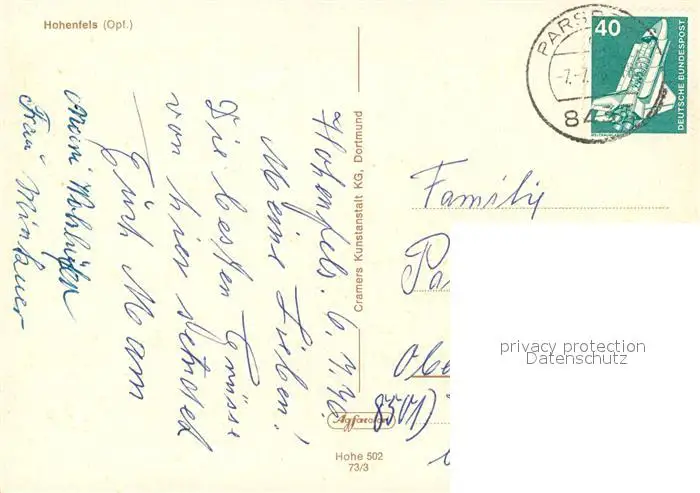 Hohenfels (Opf.)
Hohenfels. 6.7.76.
Meine Lieben!
Die besten Grüsse
von hier sendet
Euch Mam
Frau
Cramers Kunstanstalt KG, Dortmund
Agfacolor
Hohe 502
73/3
PARSB
-7.-7.
84
40
DEUTSCHE BUNDESPOST
Familie
Pa
Obe
8501)
privacy protection
Datenschutz